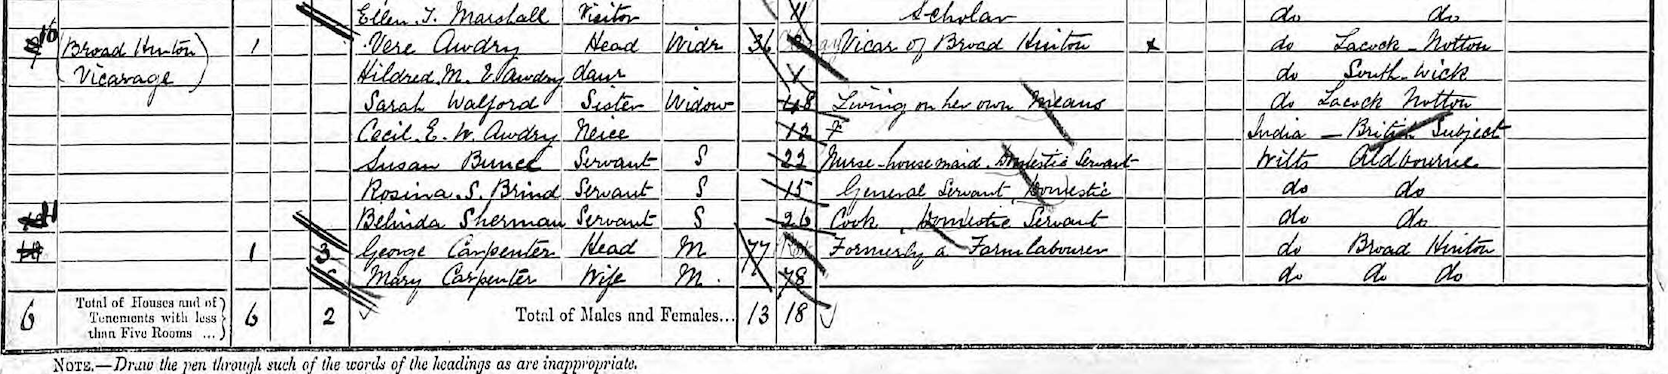 Ellen. T. Marshall Visitor 11 Scholar do do
Broad Hinton 1 Vere Awdry Head Widr 36 Vicar of Broad Hinton x do Lacock - Notton
Vicarage Hildred. M. V. Awdry daur 1 do South-wick
Sarah Walford Sister Widow 48 Living on her own Means do Lacock Notton
Cecil. E. W. Awdry Neice 12 India - British Subject
Susan Bunce Servant S 22 Nurse-housemaid. Domestic Servant Wilts Aldbourne
Rosina. S. Brind Servant S 15 General Servant Domestic do do
11 Belinda Sherman Servant S 26 Cook, Domestic Servant do do
1 3 George Carpenter Head M 77 Formerly a Farm labourer do Broad Hinton
Mary Carpenter Wife M. 78 do do do
6 Total of Houses and of Tenements with less than Five Rooms ... 6 2 Total of Males and Females... 13 18
NOTE.—Draw the pen through such of the words of the headings as are inappropriate.